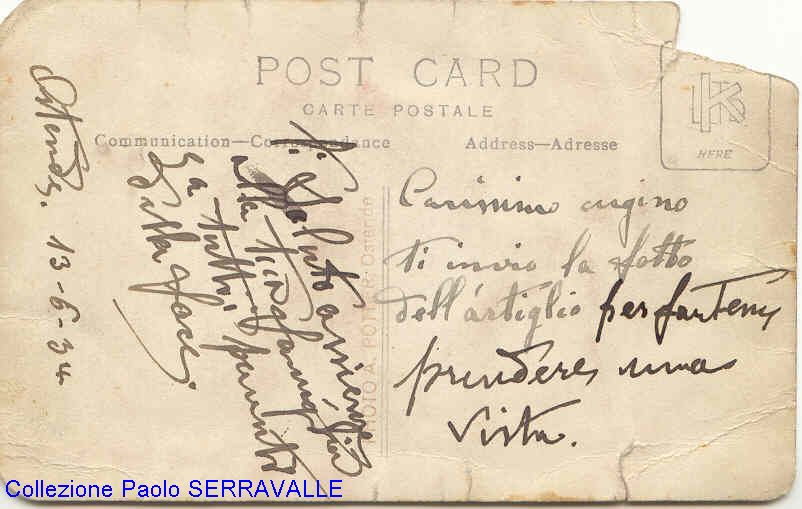 POST CARD
CARTE POSTALE
Communication—Correspondance
Address—Adresse
HERE
Ostende, 13-6-34
Carissimo cugino
ti invio la fotto
dell'artiglio per farteni
prendere una
vista.
Ti saluto assieme
alla tua famiglia
ea tutti i parenti
PHOTO A. POTTER. Ostende
Collezione Paolo SERRAVALLE